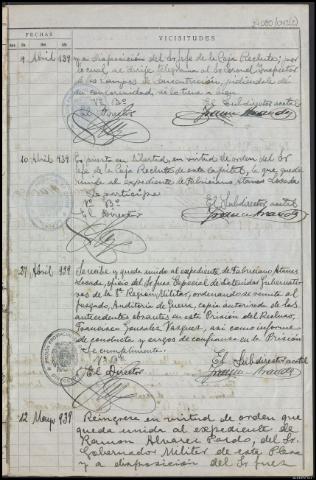 FECHAS
VICISITUDES
Día Mes Año
9 Abril 939 y a disposición del Sr Jefe de la Caja Recluta; por
lo cual, se dirije telegrama al Sr Coronel Inspector
de los Campos de Concentración, pidiéndole dé
su conformidad, si lo tiene a bien
Vº Bº
El Director
El Subdirector acctal
10 Abril 939 Es puesto en libertad, en virtud de orden del Sr
Jefe de la Caja Recluta de esta Capital, la que queda
unida al expediente de Fabriciano Atanes Losada
Se participa
Vº Bº
El Director
El Subdirector acctal
27 Abril 939 Se recibe y queda unido al expediente de Fabriciano Atanes
Losada, oficio del Sr Juez Especial de Detenidos Gubernati-
vos de la 8ª Región Militar, ordenando se remita al
Juzgado, Auditoría de Guerra, copia autorizada de los
antecedentes obrantes en esta Prisión del Recluso,
Francisco Gonzalez Vazquez, así como informe
de conducta y cargos de confianza en la Prisión
Se cumplimenta.
Vº Bº
El Director
El Subdirector acctal
12 Mayo 939 Reingresa en virtud de orden que
queda unida al expediente de
Ramon Alvarez Pardo, del Sr.
Gobernador Militar de esta Plaza
y a disposición del Sr Juez